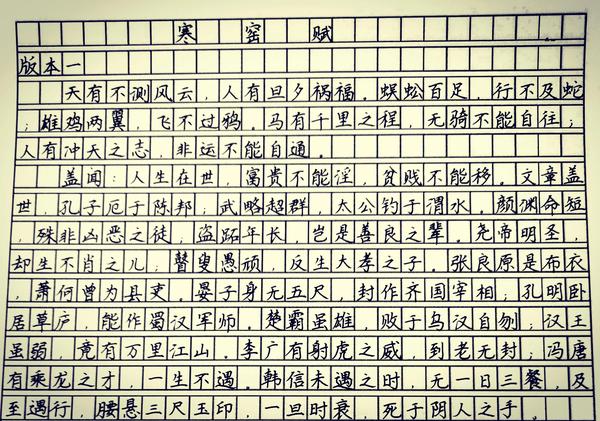 寒窑赋
版本一
天有不测风云，人有旦夕祸福。蜈蚣百足，行不及蛇
；雄鸡两翼，飞不过鸦。马有千里之程，无骑不能自往；
人有冲天之志，非运不能自通。
盖闻：人生在世，富贵不能淫，贫贱不能移。文章盖
世，孔子厄于陈邦；武略超群，太公钓于渭水。颜渊命短
，殊非凶恶之徒，盗跖年长，岂是善良之辈。尧帝明圣，
却生不肖之儿；瞽叟愚顽，反生大孝之子。张良原是布衣
，萧何曾为县吏。晏子身无五尺，封作齐国宰相；孔明卧
居草庐，能作蜀汉军师。楚霸虽雄，败于乌江自刎；汉王
虽弱，竟有万里江山。李广有射虎之威，到老无封；冯唐
有乘龙之才，一生不遇。韩信未遇之时，无一日三餐，及
至遇行，腰悬三尺玉印，一旦时衰，死于阴人之手。